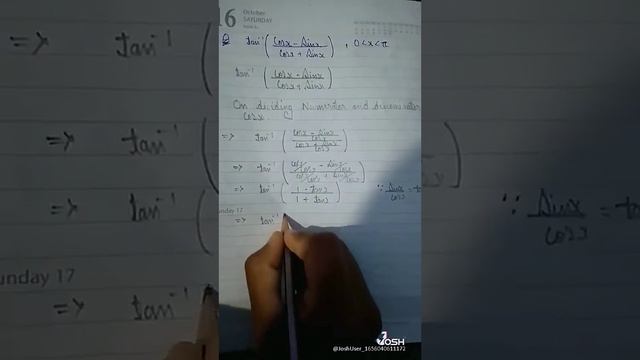 16 October
SATURDAY
Q tan⁻¹ (cosx - sinx / cosx + sinx) , 0<x<π
tan⁻¹ (cosx - sinx / cosx + sinx)
On dividing Numerator and
cosx
=> tan⁻¹ (cosx - sinx / cosx / cosx + sinx / cosx)
=> tan⁻¹ (cosx / cosx - sinx / cosx / cosx / cosx + sinx / cosx)
=> tan⁻¹ (1 - tanx / 1 + tanx) ∵ sinx / cosx =
unday 17
=> tan⁻¹
JOSH
@JoshUser_1656040611172